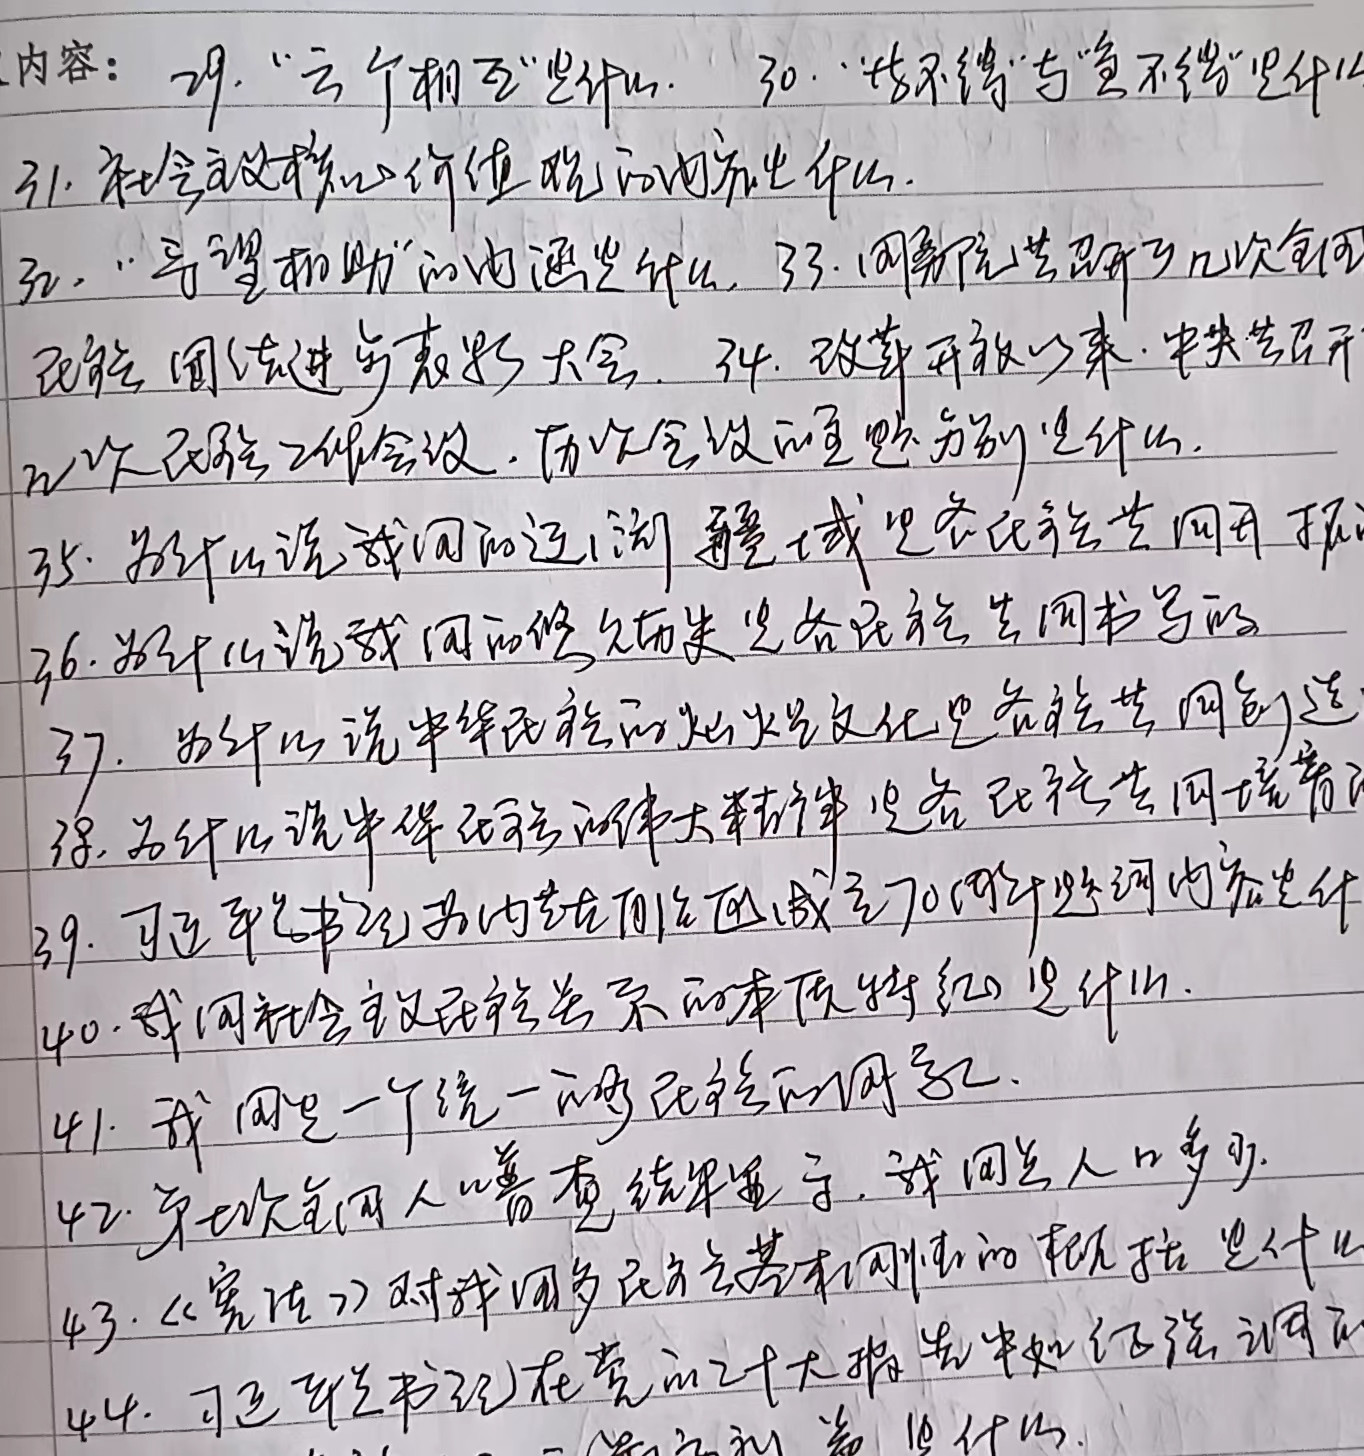 内容: 29.“六个相互”是什么. 30.“慢不得”与“急不得”是什么
31. 社会主义核心价值观的内容是什么.
32.“守望相助”的内涵是什么. 33. 国务院共召开了几次全国
民族团结进步表彰大会. 34. 改革开放以来.中央共召开
几次民族工作会议.历次会议的主题分别是什么.
35. 为什么说我国的辽阔疆域是各民族共同开拓的
36. 为什么说我国的悠久历史是各民族共同书写的
37. 为什么说中华民族的灿烂文化是各族共同创造
38. 为什么说中华民族的伟大精神是各民族共同培育的
39. 习近平总书记为内蒙古自治区成立70周年题词内容是什
40. 我国社会主义民族关系的本质特征是什么.
41. 我国是一个统一的多民族的国家.
42. 第七次全国人口普查结果显示.我国总人口多少.
43.《宪法》对我国多民族基本国情的概括是什么
44. 习近平总书记在党的二十大报告中如何强调的
是什么.